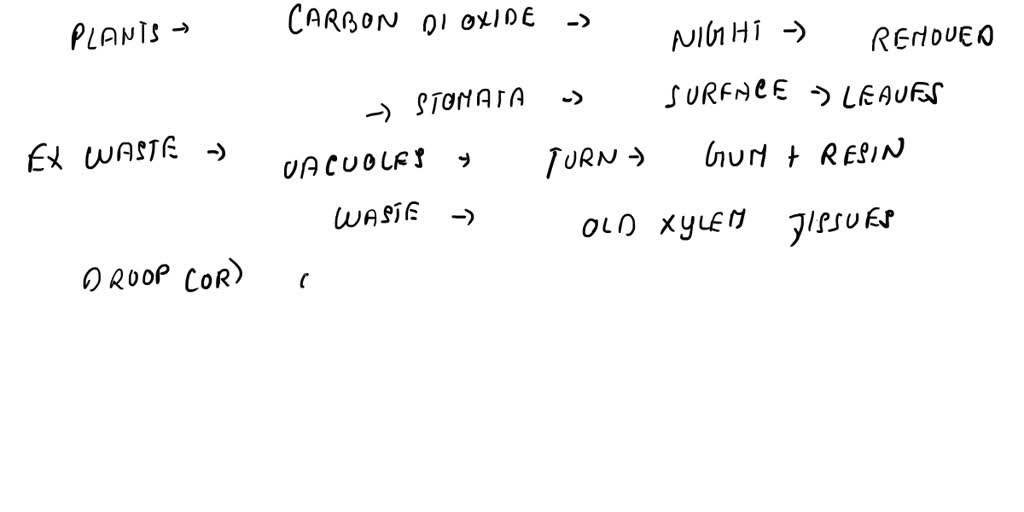 PLANTS → CARBON DIOXIDE → NIGHT → REMOVED
→ STOMATA → SURFACE → LEAVES
EX WASTE → VACUOLES → TURN → GUM + RESIN
WASTE → OLD XYLEM TISSUES
DROOP (OR) (